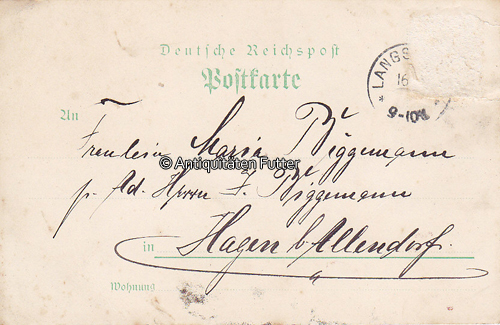 Deutsche Reichspost
Postkarte
LANGS
16
9-10V.
An
Fräulein Maria Biggemann
© Antiquitäten Futter
p. Ad. Herrn F. Biggemann
in Hagen b/Allendorf.
Wohnung